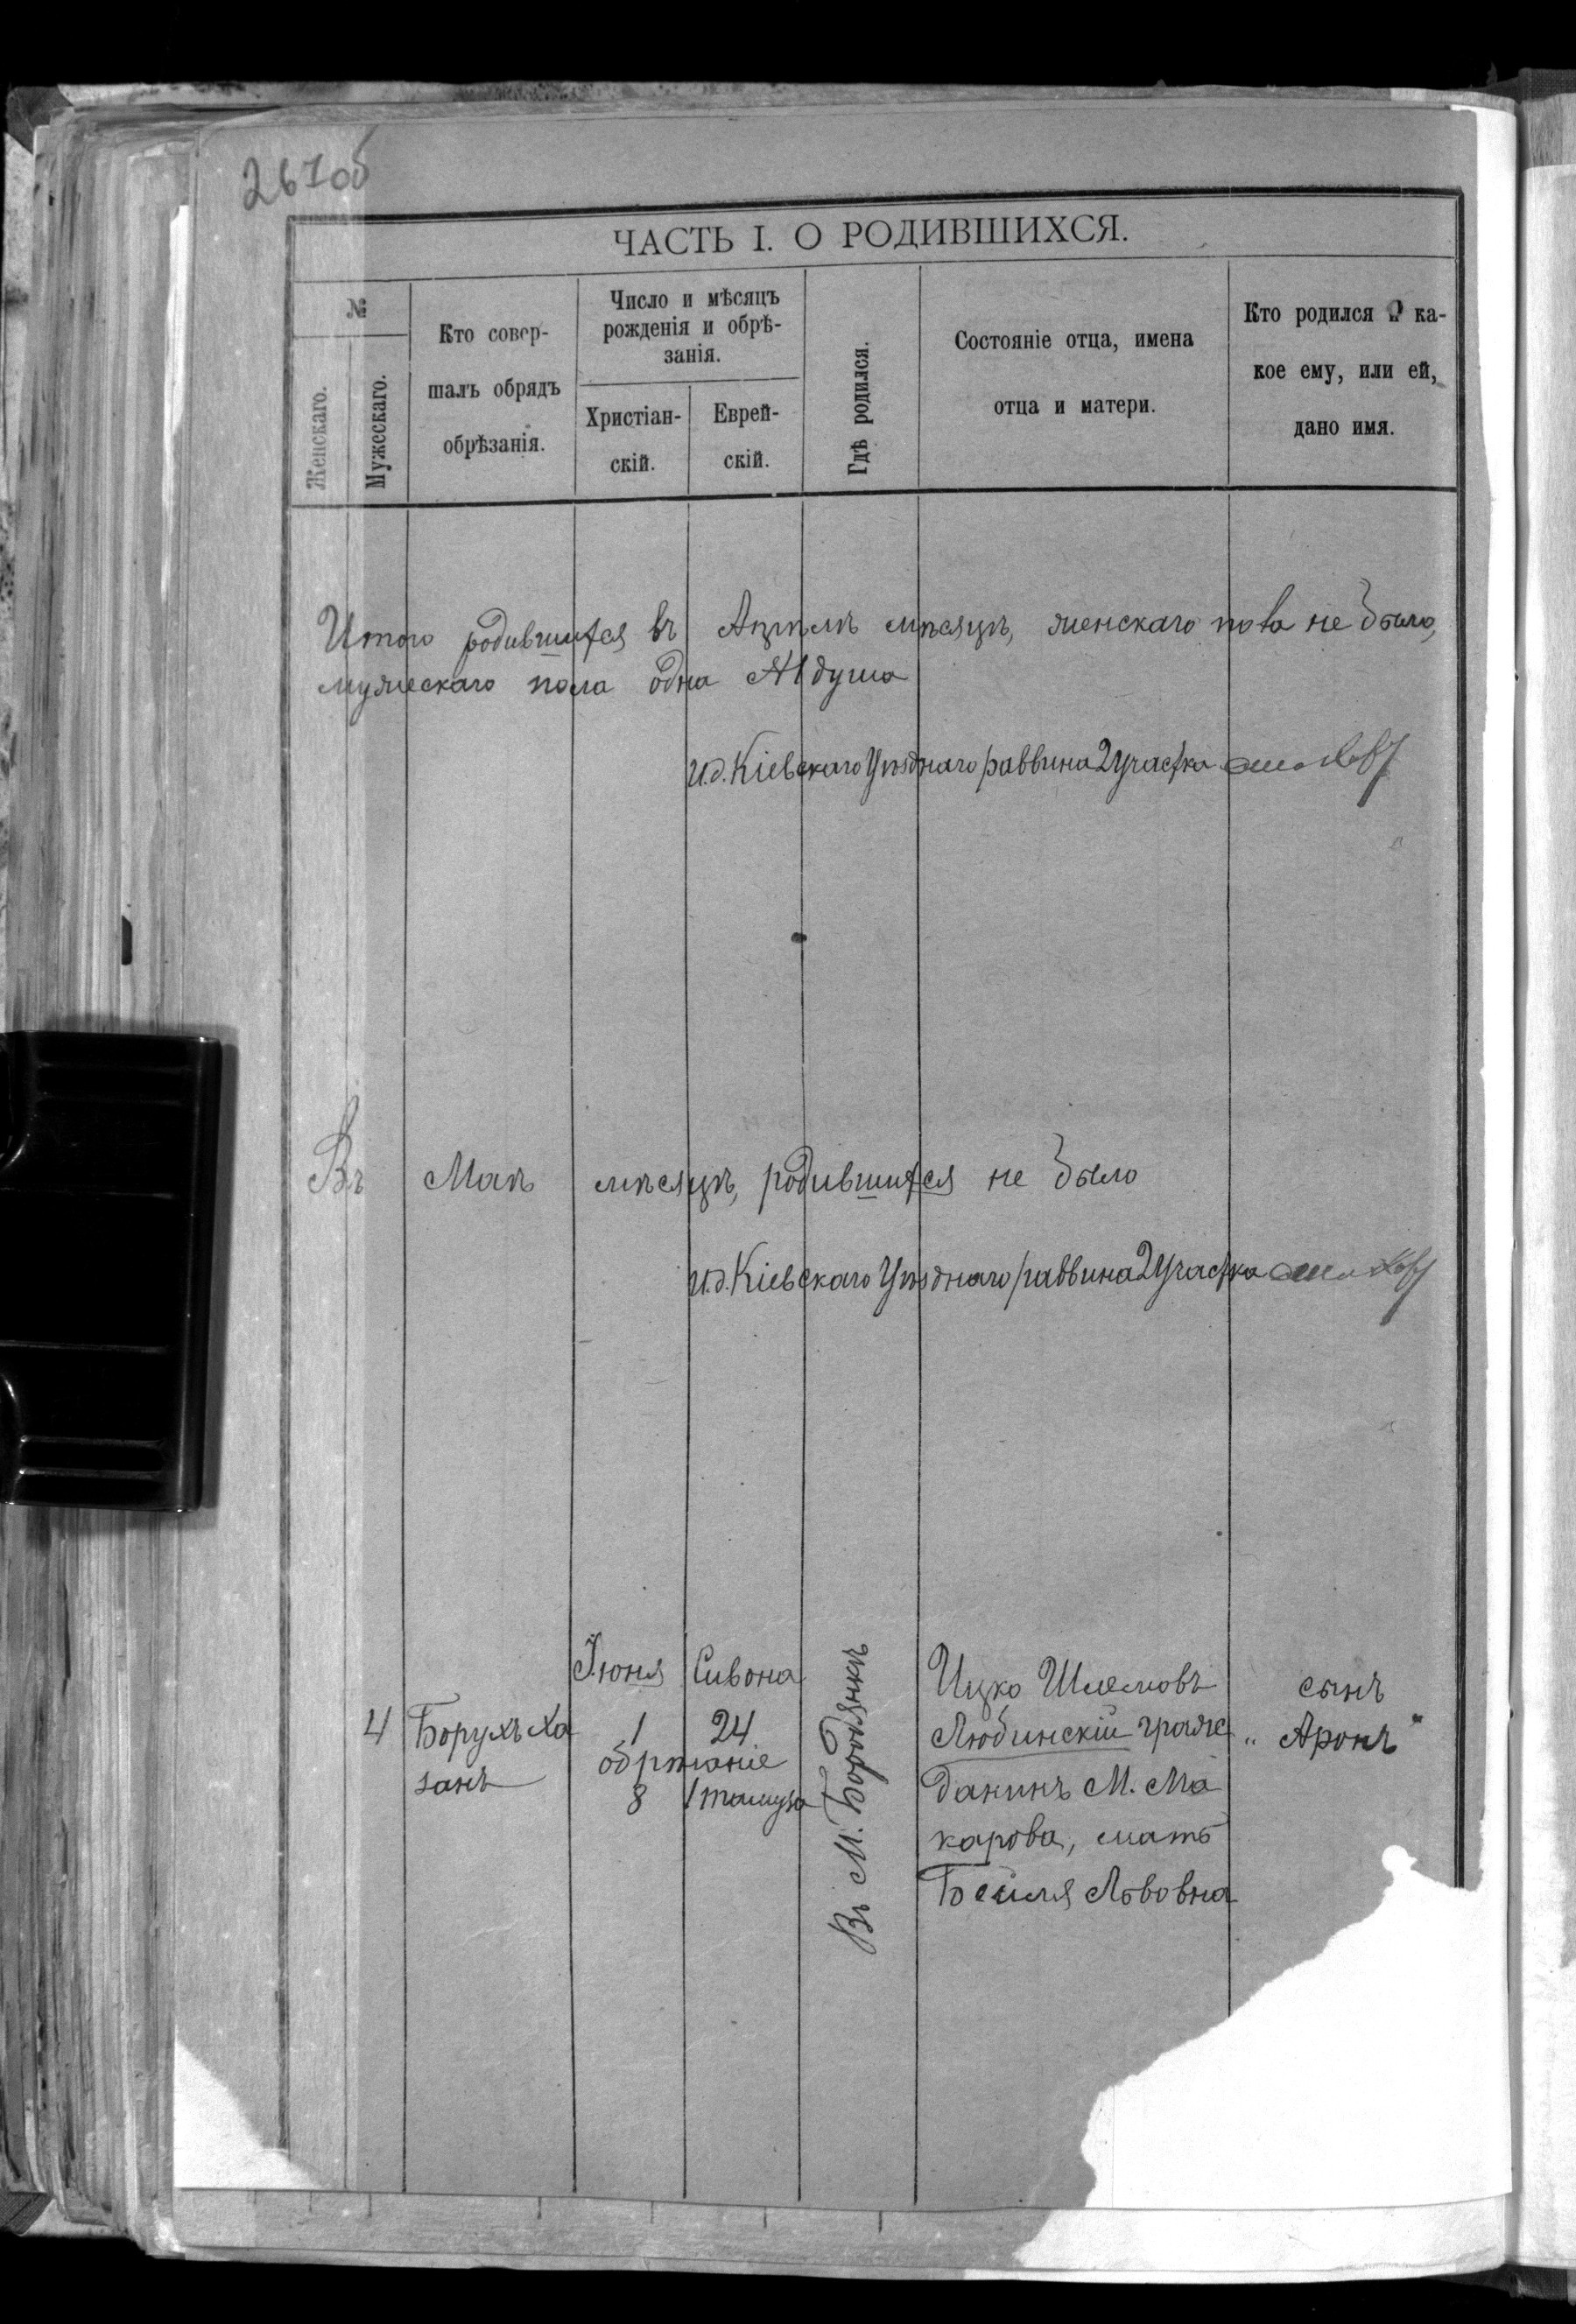 267об
ЧАСТЬ I. О РОДИВШИХСЯ.
№
Женскаго.
Мужескаго.
Кто совер-
шалъ обрядъ
обрѣзанія.
Число и мѣсяцъ
рожденія и обрѣ-
занія.
Христіан-
скій.
Еврей-
скій.
Гдѣ родился.
Состояніе отца, имена
отца и матери.
Кто родился и ка-
кое ему, или ей,
дано имя.
Итого родившихся въ Апрѣлѣ мѣсяцѣ, женскаго пола не было,
мужескаго пола одна №1 душа
И.д. Кіевскаго Уѣзднаго раввина 2 участка
Въ Маѣ мѣсяцѣ, родившихся не было
И.д. Кіевскаго Уѣзднаго раввина 2 участка
4
Борухъ Ха
занъ
Іюня
1
обрѣзаніе
8
Сивона
24
1 тамуза
Въ М. Бородянкѣ
Ицко Шлемовъ
Любинскій граж
данинъ М. Ма
карова, мать
Бейля Львовна
сынъ
„Аронъ"